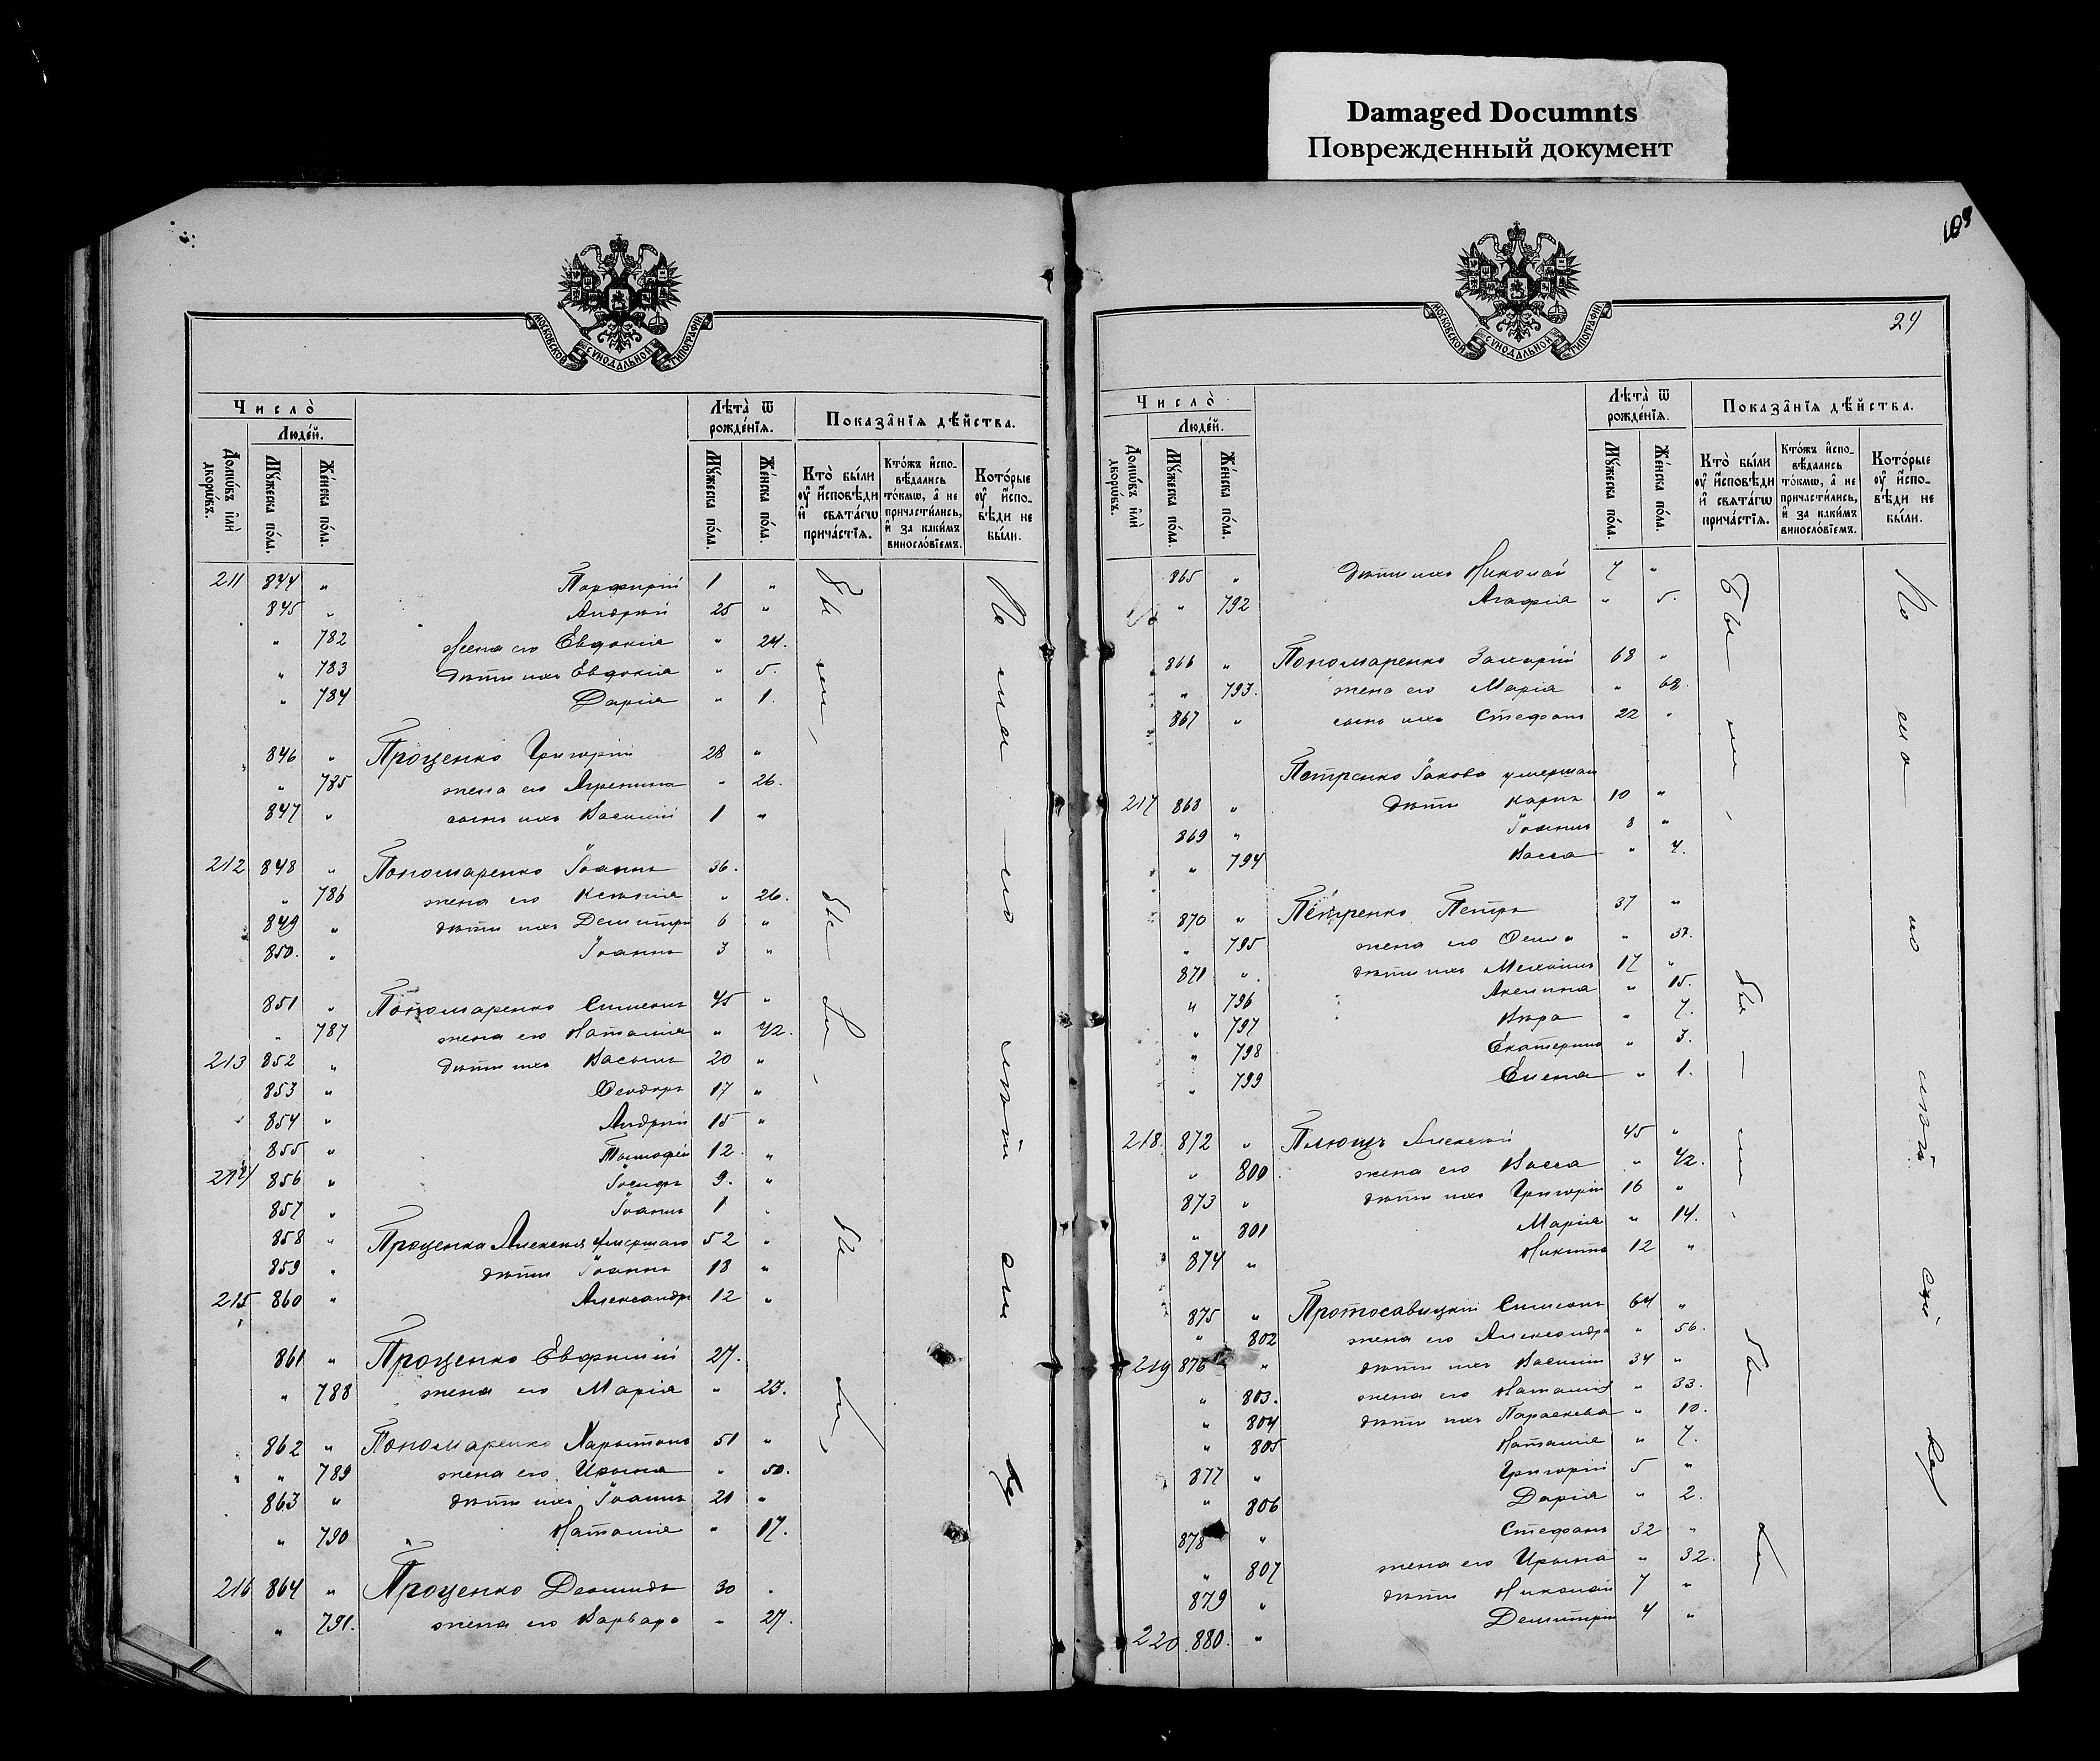 Damaged Documnts
Поврежденный документ
МОСКОВСКОЙ СѴНОДАЛЬНОЙ ТИПОГРАФІИ
Число̀
Людéй.
Домѡ́въ и҆лѝ дворѡ́въ.
Мꙋ́жеска по́ла.
Же́нска по́ла.
Лѣта̀ ѿ рожде́нїѧ.
Мꙋ́жеска по́ла.
Же́нска по́ла.
Показа̑нїѧ дѣ́йства.
Кто̀ бы́ли ᲂу҆ и҆сповѣ́ди и҆ свѧта́гѡ прича́стїѧ.
Кто́жъ и҆сповѣ́дались то́кмѡ, а҆ не причасти́лись, и҆ за каки́мъ винослѻ́вїемъ.
Кото́рые ᲂу҆ и҆сповѣ́ди не бы́ли.
211 844 " Порфирій 1 "
845 " Андрей 25 "
" 782 жена его Евдокія " 24.
" 783 дѣти ихъ Евдокія " 5.
" 784 Дарія " 1.
846 " Проценко Григорій 28 "
" 785 жена его Агрепина " 26.
847 " сынъ ихъ Василій 1 "
212 848 " Пономаренко Іоаннъ 36.
" 786 жена его Ксенія " 26.
849 " дѣти ихъ Димитрій 6 "
850. " Іоаннъ 3 "
851 " Пономаренко Симеонъ 45 "
" 787 жена его Наталія " 42.
213 852 " дѣти ихъ Василь 20 "
853 " Ѳеодоръ 17 "
854 " Андрей 15 "
855 " Тимофей 12 "
214 856 " Іосифъ 9. "
857 " Іоаннъ 1 "
858 " Проценка Алексея умершаго 52 "
859 " дѣти Іоаннъ 18 "
215 860 " Александръ 12 "
861 " Проценко Евфимій 27.
" 788 жена его Марія " 23.
862 " Пономаренко Харитонъ 51 "
" 789 жена его Ирина " 50.
863 " дѣти ихъ Іоаннъ 21 "
" 790 Наталія " 17.
216 864 " Проценко Леонидъ 30 "
" 791. жена его Варвара " 27.
МОСКОВСКОЙ СѴНОДАЛЬНОЙ ТИПОГРАФІИ
Число̀
Людéй.
Домѡ́въ и҆лѝ дворѡ́въ.
Мꙋ́жеска по́ла.
Же́нска по́ла.
Лѣта̀ ѿ рожде́нїѧ.
Мꙋ́жеска по́ла.
Же́нска по́ла.
Показа̑нїѧ дѣ́йства.
Кто̀ бы́ли ᲂу҆ и҆сповѣ́ди и҆ свѧта́гѡ прича́стїѧ.
Кто́жъ и҆сповѣ́дались то́кмѡ, а҆ не причасти́лись, и҆ за каки́мъ винослѻ́вїемъ.
Кото́рые ᲂу҆ и҆сповѣ́ди не бы́ли.
865 " дѣти ихъ Николай 7 "
" 792 Агафія " 5.
866 " Пономаренко Захарій 68 "
" 793. жена его Марія " 62.
867 " сынъ ихъ Стефанъ 22 "
Петренко Іакова умершаго
217 868 " дѣти Карпъ 10 "
869 " Іоаннъ 8 "
" 794 Васса " 4.
870 " Петренко Петръ 37 "
" 795 жена его 37.
871 " дѣти ихъ Михаилъ 17 "
" 796 Акелина " 15.
" 797 Вѣра " 7.
" 798 Екатерина " 3.
" 799 Елена " 1.
218. 872 " Плющъ Алексей 45 "
" 800 жена его Васса " 42.
873 " дѣти ихъ Григорій 16 "
" 801 Марія " 14.
874 " Никита 12 "
875 " Протосавицкій Симеонъ 64 "
" 802 жена его Александра " 56.
219 876 " дѣти ихъ Василій 34 "
" 803. жена его Наталія " 33.
" 804 дѣти ихъ Параскева " 10.
" 805 Наталія " 7.
877 " Григорій 5 "
" 806 Дарія " 2.
878 " Стефанъ 32 "
" 807 жена его Ирина " 32.
879 " дѣти Николай 7 "
220 880. " Димитрій 4 "